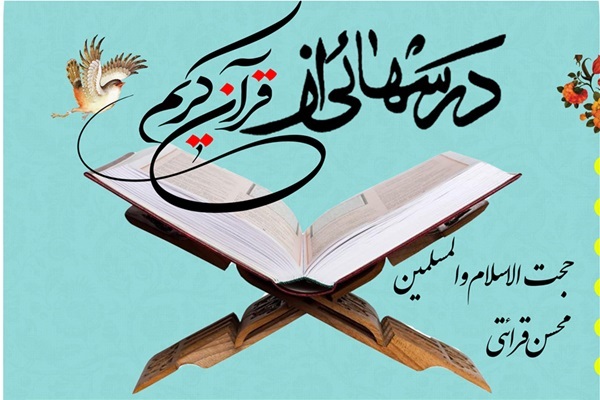 درسهائی از قرآن کریم
حجت الاسلام والمسلمین
محسن قرائتی